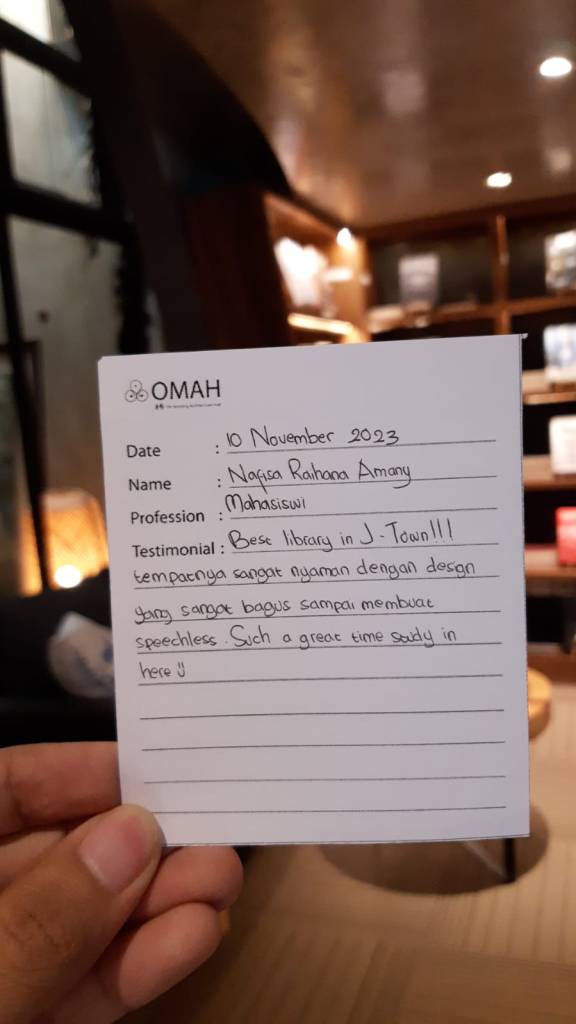 OMAH
Date : 10 November 2023
Name : Nafisa Raihana Amany
Profession : Mahasiswi
Testimonial : Best library in J-Town!!!
tempatnya sangat nyaman dengan design
yang sangat bagus sampai membuat
speechless. Such a great time study in
here :)